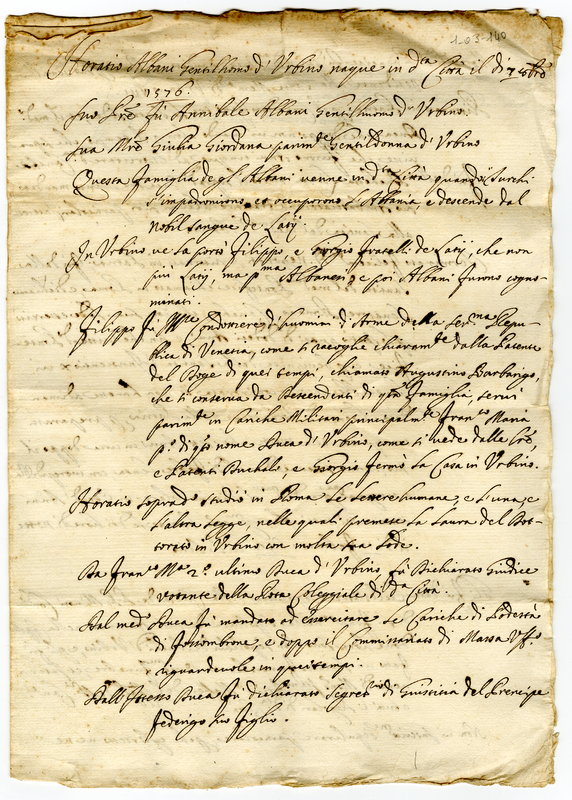 103-140
Horatio Albani Gentilhomo d'Urbino naque in d.ta Città il dì 7 xbre
1576
Suo Pre fu Annibale Albani Gentilhuomo d'Urbino.
Sua Mre Giulia Giordana parim.te Gentildonna d'Urbino
Questa famiglia de gl'Albani venne in d.ta Città quando i Turchi
s'impadronirono, et occuporono l'Albania, e descende dal
nobil sangue de Latij.
In Urbino ve la portò Filippo, e Giorgio fratelli de Latij, che non
più Latij, ma p.ma Albanesi, e poi Albani furono cogno-
minati.
Filippo fu Condottiere d'huomini d'Arme della Ser.ma Repu-
blica di Venetia, come si raccoglie chiaram.te dalla Patente
del Doge di quei tempi, chiamato Augustino Barbarigo,
che si conserva da Descendenti di q.ta famiglia, servì
parim.te in Cariche Militari principalm.te Fran.co Maria
p.o di q.to nome Duca d'Urbino, come si vede dalle Lre,
e Patenti Duchali, e Giorgio fermò la Casa in Urbino.
Horatio soprad.o studiò in Roma le lettere humane, e l'una, e
l'altra legge, nelle quali premese la Laura del Dot-
torato in Urbino con molta sua lode.
Da Fran.co M.a 2.o ultimo Duca d'Urbino fu Dichiarato Giudice
votante della Rota Colleggiale di d.a Città.
Dal med.o Duca fu mandato ad essercitare le Cariche di Podestà
di Fossombrone, e doppo il Commissariato di Massa Uff.o
riguardevole in quei tempi.
Dall'istesso Duca fu dichiarato Segret.rio di Giustitia del Prencipe
Federigo suo figlio.